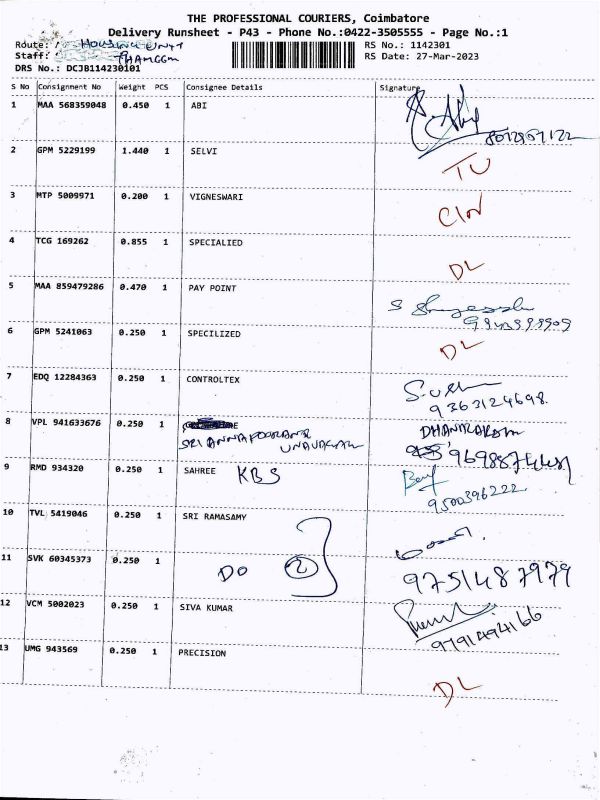 THE PROFESSIONAL COURIERS, Coimbatore
Delivery Runsheet - P43 - Phone No.:0422-3505555 - Page No.:1
Route: HOUSING UNIT
RS No.: 1142301
Staff:
RS Date: 27-Mar-2023
DRS No.: DCJB114230101
S No Consignment No Weight PCS Consignee Details Signature
1 MAA 568359048 0.450 1 ABI
2 GPM 5229199 1.440 1 SELVI TU
3 MTP 5009971 0.200 1 VIGNESWARI
4 TCG 169262 0.855 1 SPECIALIED DL
5 MAA 859479286 0.470 1 PAY POINT
6 GPM 5241063 0.250 1 SPECILIZED DL
7 EDQ 12284363 0.250 1 CONTROLTEX
9363124698.
8 VPL 941633676 0.250 1
SRI ANNAPOORANI
9 RMD 934320 0.250 1 SAHREE KBS
9500396222
10 TVL 5419046 0.250 1 SRI RAMASAMY
11 SVK 60345373 0.250 1 DO 2
9751487979
12 VCM 5002023 0.250 1 SIVA KUMAR
9791494166
13 UMG 943569 0.250 1 PRECISION DL